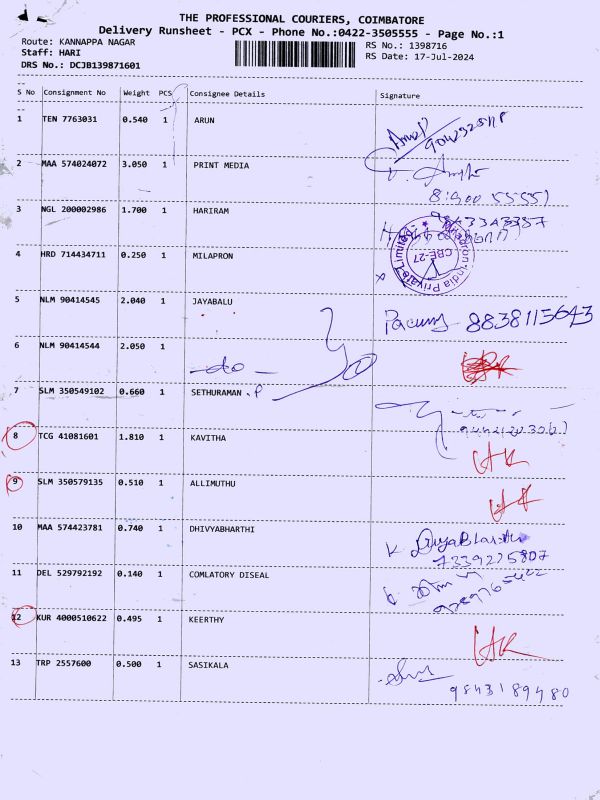 THE PROFESSIONAL COURIERS, COIMBATORE
Delivery Runsheet - PCX - Phone No.:0422-3505555 - Page No.:1
Route: KANNAPPA NAGAR
RS No.: 1398716
Staff: HARI
RS Date: 17-Jul-2024
DRS No.: DCJB139871601
S No Consignment No Weight PCS Consignee Details Signature
1 TEN 7763031 0.540 1 ARUN
2 MAA 574024072 3.050 1 PRINT MEDIA
3 NGL 200002986 1.700 1 HARIRAM
9843343387
4 HRD 714434711 0.250 1 MILAPRON
CBE-27
India Private Limited
5 NLM 90414545 2.040 1 JAYABALU
8838115643
6 NLM 90414544 2.050 1
-do-
7 SLM 350549102 0.660 1 SETHURAMAN .P
8 TCG 41081601 1.810 1 KAVITHA
9 SLM 350579135 0.510 1 ALLIMUTHU
10 MAA 574423781 0.740 1 DHIVYABHARTHI
7339275807
11 DEL 529792192 0.140 1 COMLATORY DISEAL
12 KUR 4000510622 0.495 1 KEERTHY
13 TRP 2557600 0.500 1 SASIKALA
9843189480